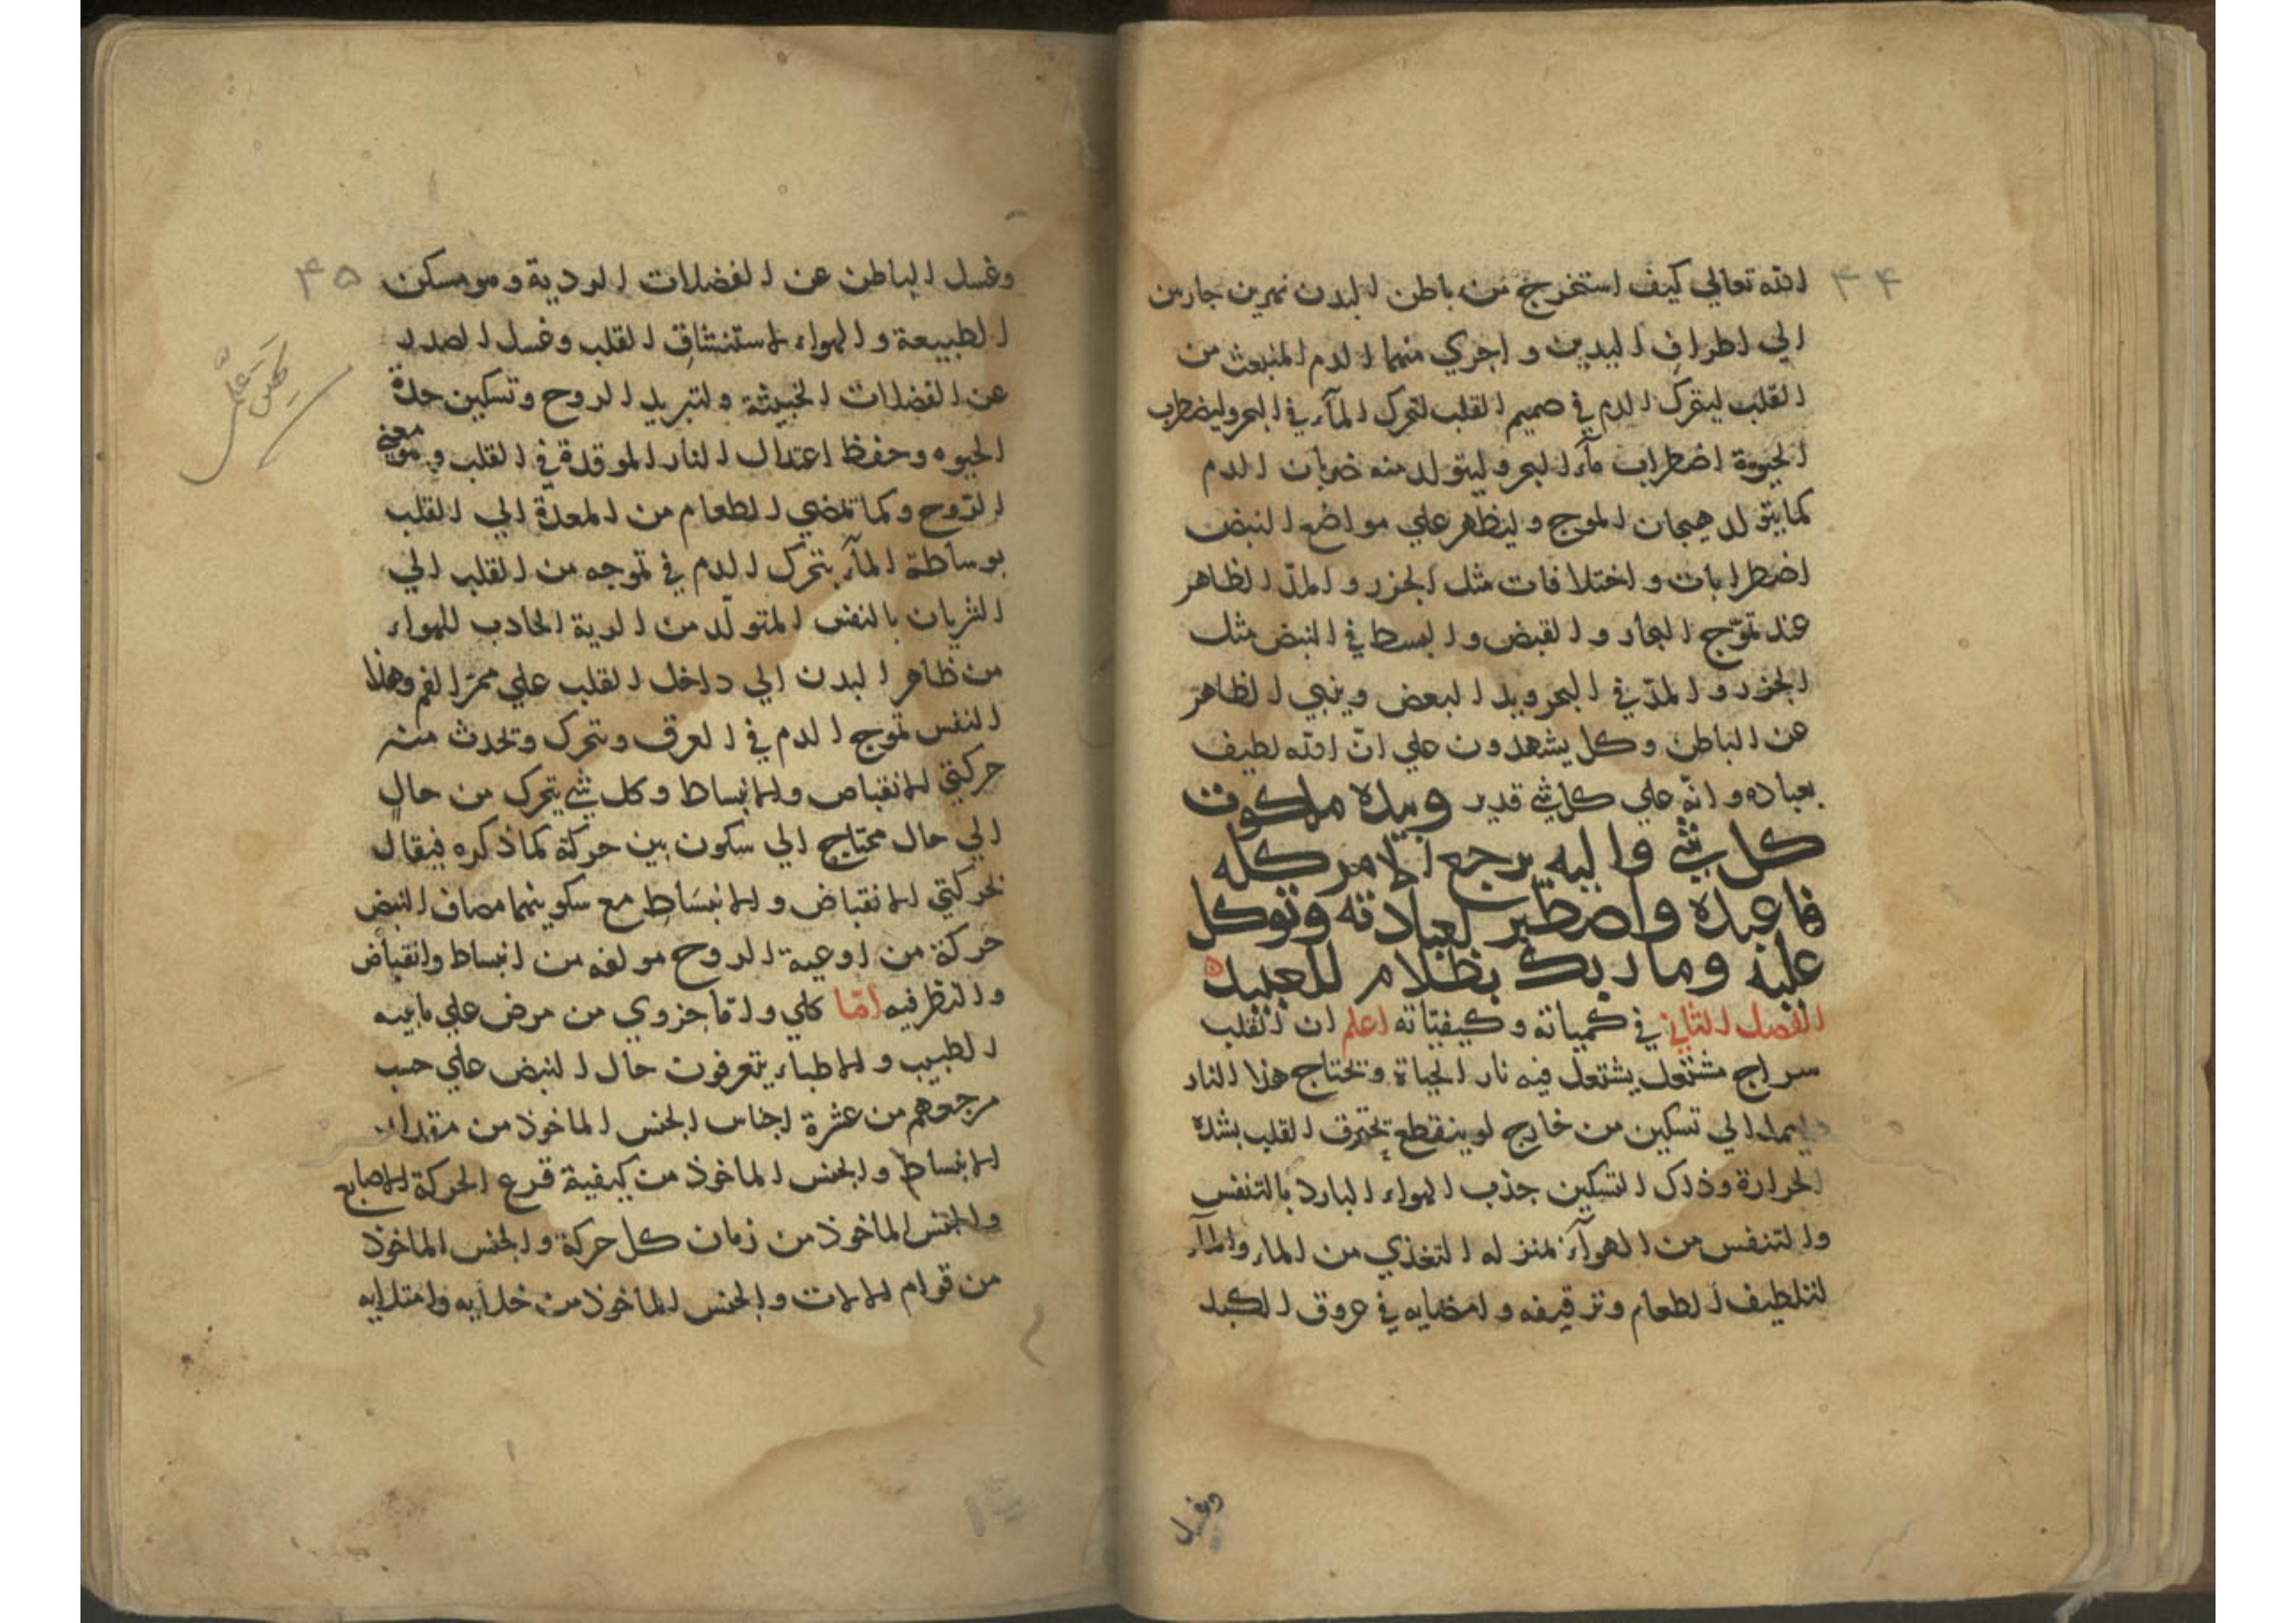 ٤٤
الله تعالي كيف استخرج من باطن البدن نهرين جارين
الي اطراف اليدين و اجري منهما الدم المنبعث من
القلب ليتحرك الدم في صميم القلب لتحرك المآء في البحر وليضطرب
الحيوة اضطراب مآء البحر وليتولد منه ضربان الدم
كما يتولد هيجان الموج و ليظهر علي مواضع النبض
اضطرابات و اختلافات مثل الجزر و المدّ الظاهر
عند تموّج البحار و القبض و البسط في النبض مثل
الجزر و المدّ في البحر ويد البعض وينبي الظاهر
عن الباطن وكل يشهدون علي انّ الله لطيف
بعباده و انّه علي كل شي قدير وبيده ملكوت
كل شي واليه يرجع الامر كله
فاعبده واصطبر لعبادته وتوكل
عليه وما ربك بظلام للعبيد ه
الفصل الثاني في كمياته و كيفيّاته اعلم ان القلب
سراج مشتعل يشتعل فيه نار الحياة و تحتاج هذا النار
دايما الي تسكين من خارج لو ينقطع تحترق القلب بشدة
الحرارة وذلك التسكين جذب الهواء البارد بالتنفس
والتنفس من الهوآء بمنزله التغذي من الماء والمآء
لتلطيف الطعام وترقيقه و امضايه في عروق الكبد
وغسل
٤٥
وغسل الباطن عن الفضلات الردية و هو مسكن
الطبيعة و الهواء لاستنشاق القلب وغسل الصدر
عن الفضلات الخبيثة ولتبريد الروح وتسكين حدة
الحيوه وحفظ اعتدال النار الموقدة في القلب و هو معني
الرّوح وكما تمضي الطعام من المعدة الي القلب
بوساطة المآء يتحرك الدم في تموجه من القلب الي
الشريان بالنفس المتولّد من الرية الجاذب للهواء
من ظاهر البدن الي داخل القلب علي ممرّ الفم وهذا
النفس تموج الدم في العرق وتحرك وتحدث منه
حركتي الانقباض والانبساط وكل شي يتحرك من حال
الي حال محتاج الي سكون بين حركة كما ذكره فيقال
لحركتي الانقباض و الانبساط مع سكونهما مصاف النبض
حركة من اوعية الروح مولفه من انبساط وانقباض
والنظر فيه امّا كلي و امّا جزوي من مرض علي ما بينه
الطبيب و الاطباء يتعرفون حال النبض علي حسب
مرجعهم من عشرة اجناس الجنس الماخوذ من مقدار
الانبساط والجنس الماخوذ من كيفية قرع الحركة الاصابع
والجنس الماخوذ من زمان كل حركة و الجنس الماخوذ
من قوام الالات و الجنس الماخوذ من خلايه وامتلايه